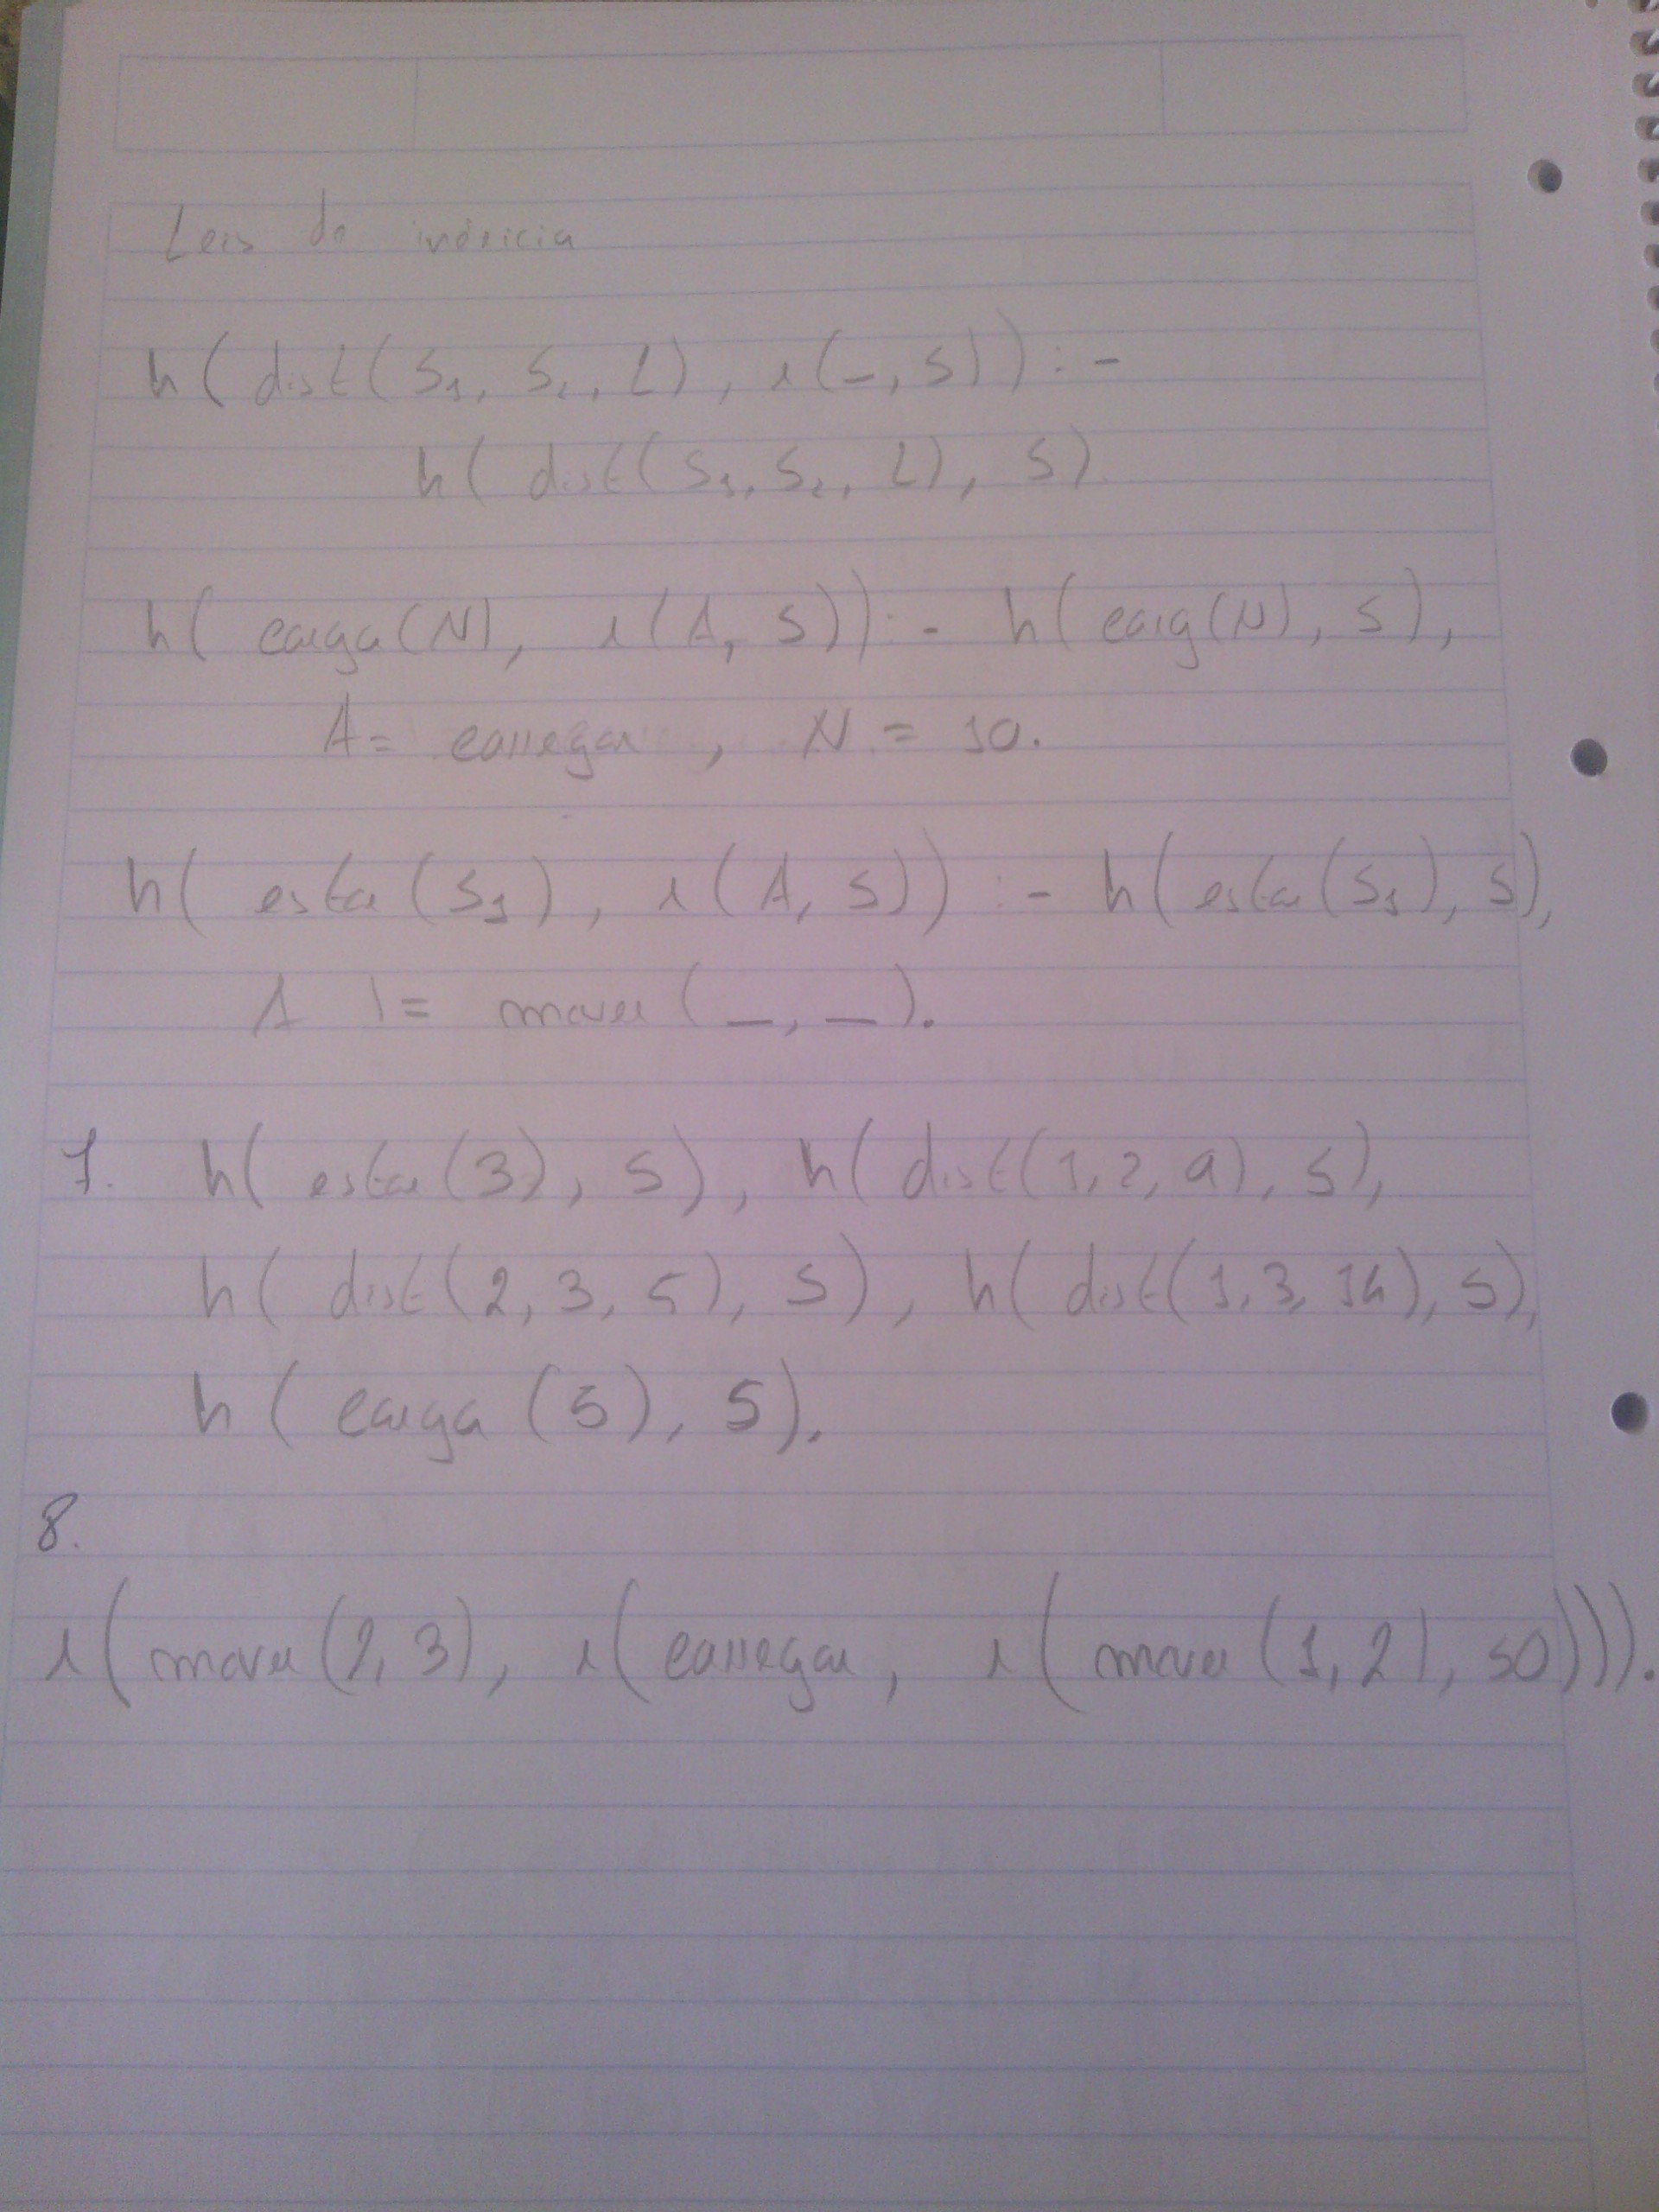 Leis da inércia
h( dist(S1, S2, L), r(_, S)) :-
h( dist(S1, S2, L), S).
h( carga(N), r(A, S)) :- h( carg(N), S),
A= carregar , N = 10.
h( estar(S1), r(A, S)) :- h( estar(S1), S),
A \= mover(_, _).
7. h( estar(3), S), h( dist(1, 2, 9), S),
h( dist(2, 3, 5), S), h( dist(1, 3, 14), S),
h( carga(5), S).
8.
r( mover(2, 3), r( carregar, r( mover(1, 2), s0))).